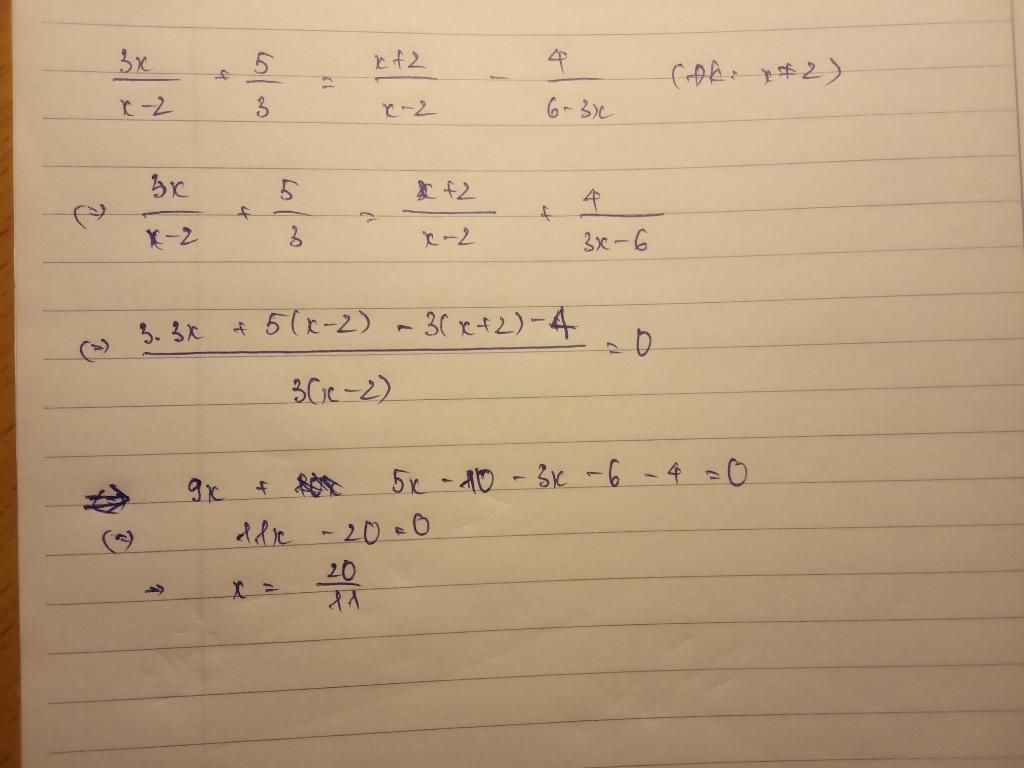 3x/(x-2) + 5/3 = (x+2)/(x-2) - 4/(6-3x) (ĐK: x≠2)
(=) 3x/(x-2) + 5/3 = (x+2)/(x-2) + 4/(3x-6)
(=) (3.3x + 5(x-2) - 3(x+2) - 4)/(3(x-2)) = 0
=> 9x + 5x - 10 - 3x - 6 - 4 = 0
(=) 11x - 20 = 0
=> x = 20/11